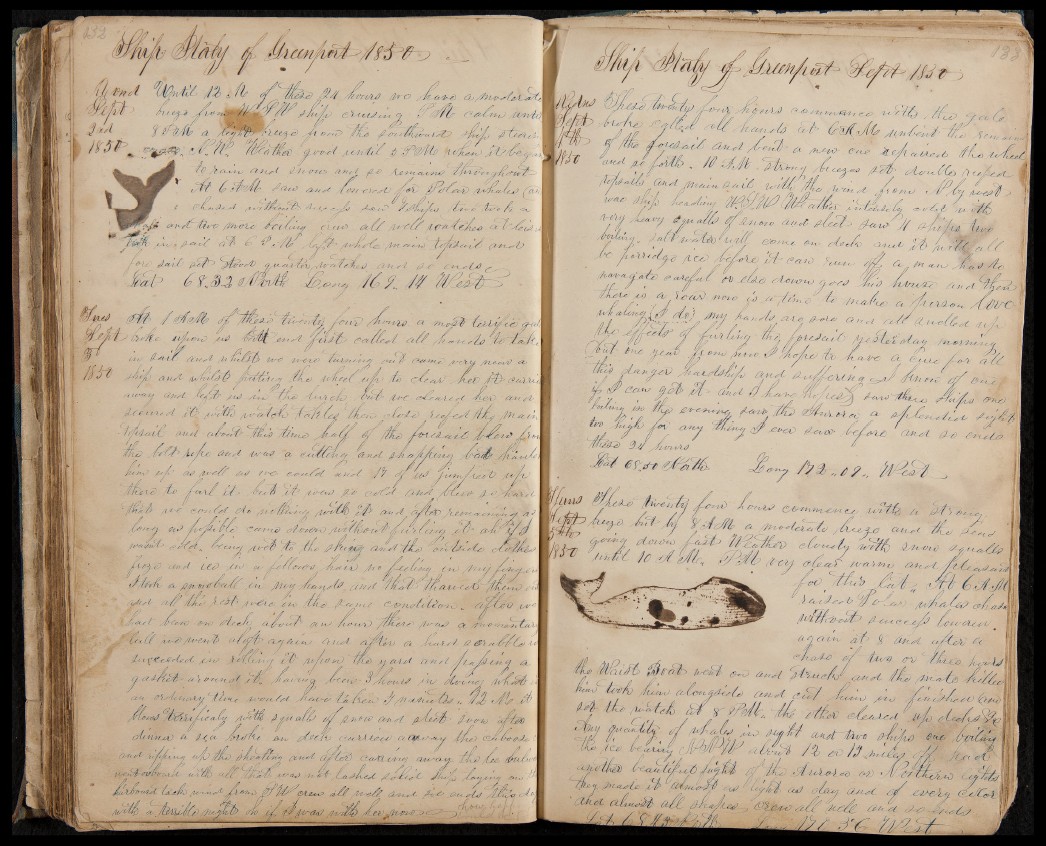 132
Ship Italy of Greenport 1850
Wednd Until 12 M of these 24 hours we have a moderate
Sept breeze from ship cruising PM calm until
3rd 8 a light breeze from the southward ship steered
1850 N.W. Weather good until 5 PM when it began
to rain and snow and so remains throughout
At 6 AM saw and lowered for Polar whales
chased without success saw 7 ships two took a
and two more boiling crew all well watches at
Took in sail at 6 P.M. left whole main topsail and
fore sail set Stood quarter watches and so ends
Lat 68.32 North Long 169.14 West
At 1 AM of these twenty four hours a most terrific
Sept strike upon us and first called all hands to take
in sail and whilst we were turning out came very near a
1850 ship and whilst putting the wheel up to clear her it carried
away and left us in the lurch but we cleared her and
secured it with watch tackles then close reefed the main
topsail and about this time half of the foresail blew from
the bolt rope and was a cutting and slapping but hauled
him up as well as we could and 14 of us jumped up
there to furl it but it was so cold and blew so hard
that we could do nothing with it and after remaining as
long as possible came down without furling it ah if I
wasnt cold being wet to the skin and the outside clothes
froze and ice in a fellows hair no feeling in my fingers
I took a snowball in my hands and that thawed them out
and all the rest were in the same condition after we
had been on deck about an hour there was a momentary
lull we went aloft again and after a hard scrabble
succeeded in rolling it upon the yard and passing a
gasket around it having been 3 hours in doing what in
an ordinary time would have taken 5 minutes 12 M it
blows terrificaly with squalls of snow and sleet soon after
dinner a sea broke on deck carried away the caboose
and ripping up the sheathing and after carrying away the lee
went overboard with all that was not lashed solid Ship laying on the
larboard tack wind from SW crew all well and so ends this day
with a terrible night
133
Ship Italy of Greenport Sept 1850
These twenty four hours commence with the gale
Sept broke called all hands at 6 AM unbent the remains
4th of the foresail and bent a new one repaired the wheel
1850 and so forth 10 AM strong breezes set double reefed
topsails and main sail with the wind from N by west
ship heading Weather intensely cold with
very heavy squalls of snow and sleet saw 4 ships two
boiling salt water will come on deck and it will all
be porridge ice before it can run off a man has to
navagate careful or else down goes his house and then
there is a roar now is a time to make a person love
whaling (I do) my hands are sore and all swelled up
the effects of furling the foresail yesterday morning
but one year from now I hope to have a cure for all
this danger hardship and suffering I know of one
if I can get it and I have hopes saw three ships one
boiling in the evening saw the Aurora a splendid sight
too high for any thing I ever saw before and so ends
these 24 hours
Lat 68.50 North Long 172.09 West
Thurs These twenty four hours commence with a strong
Sept breeze but by 8 AM a moderate breeze and the sea
5th going down fast Weather cloudy with snow squalls
1850 until 10 A.M. PM very clear warm and pleasant
for this Lat. At 6 AM
raised Polar whales chased
without success lowered
again at 8 and after a
chase of two or three hours
the Waist Boat went on and struck and the mate killed
him took him alongside and cut him in finished and
set the watch at 8 PM the other cleared up decks &c
Any quantity of whales in sight and two ships one boiling
the ice bearing about 12 or 13 miles off
another beautiful sight of the Auroras or Northern Lights
they made it almost as light as day and of every color
and almost all shapes crew all well and so ends
Long 170.56 West